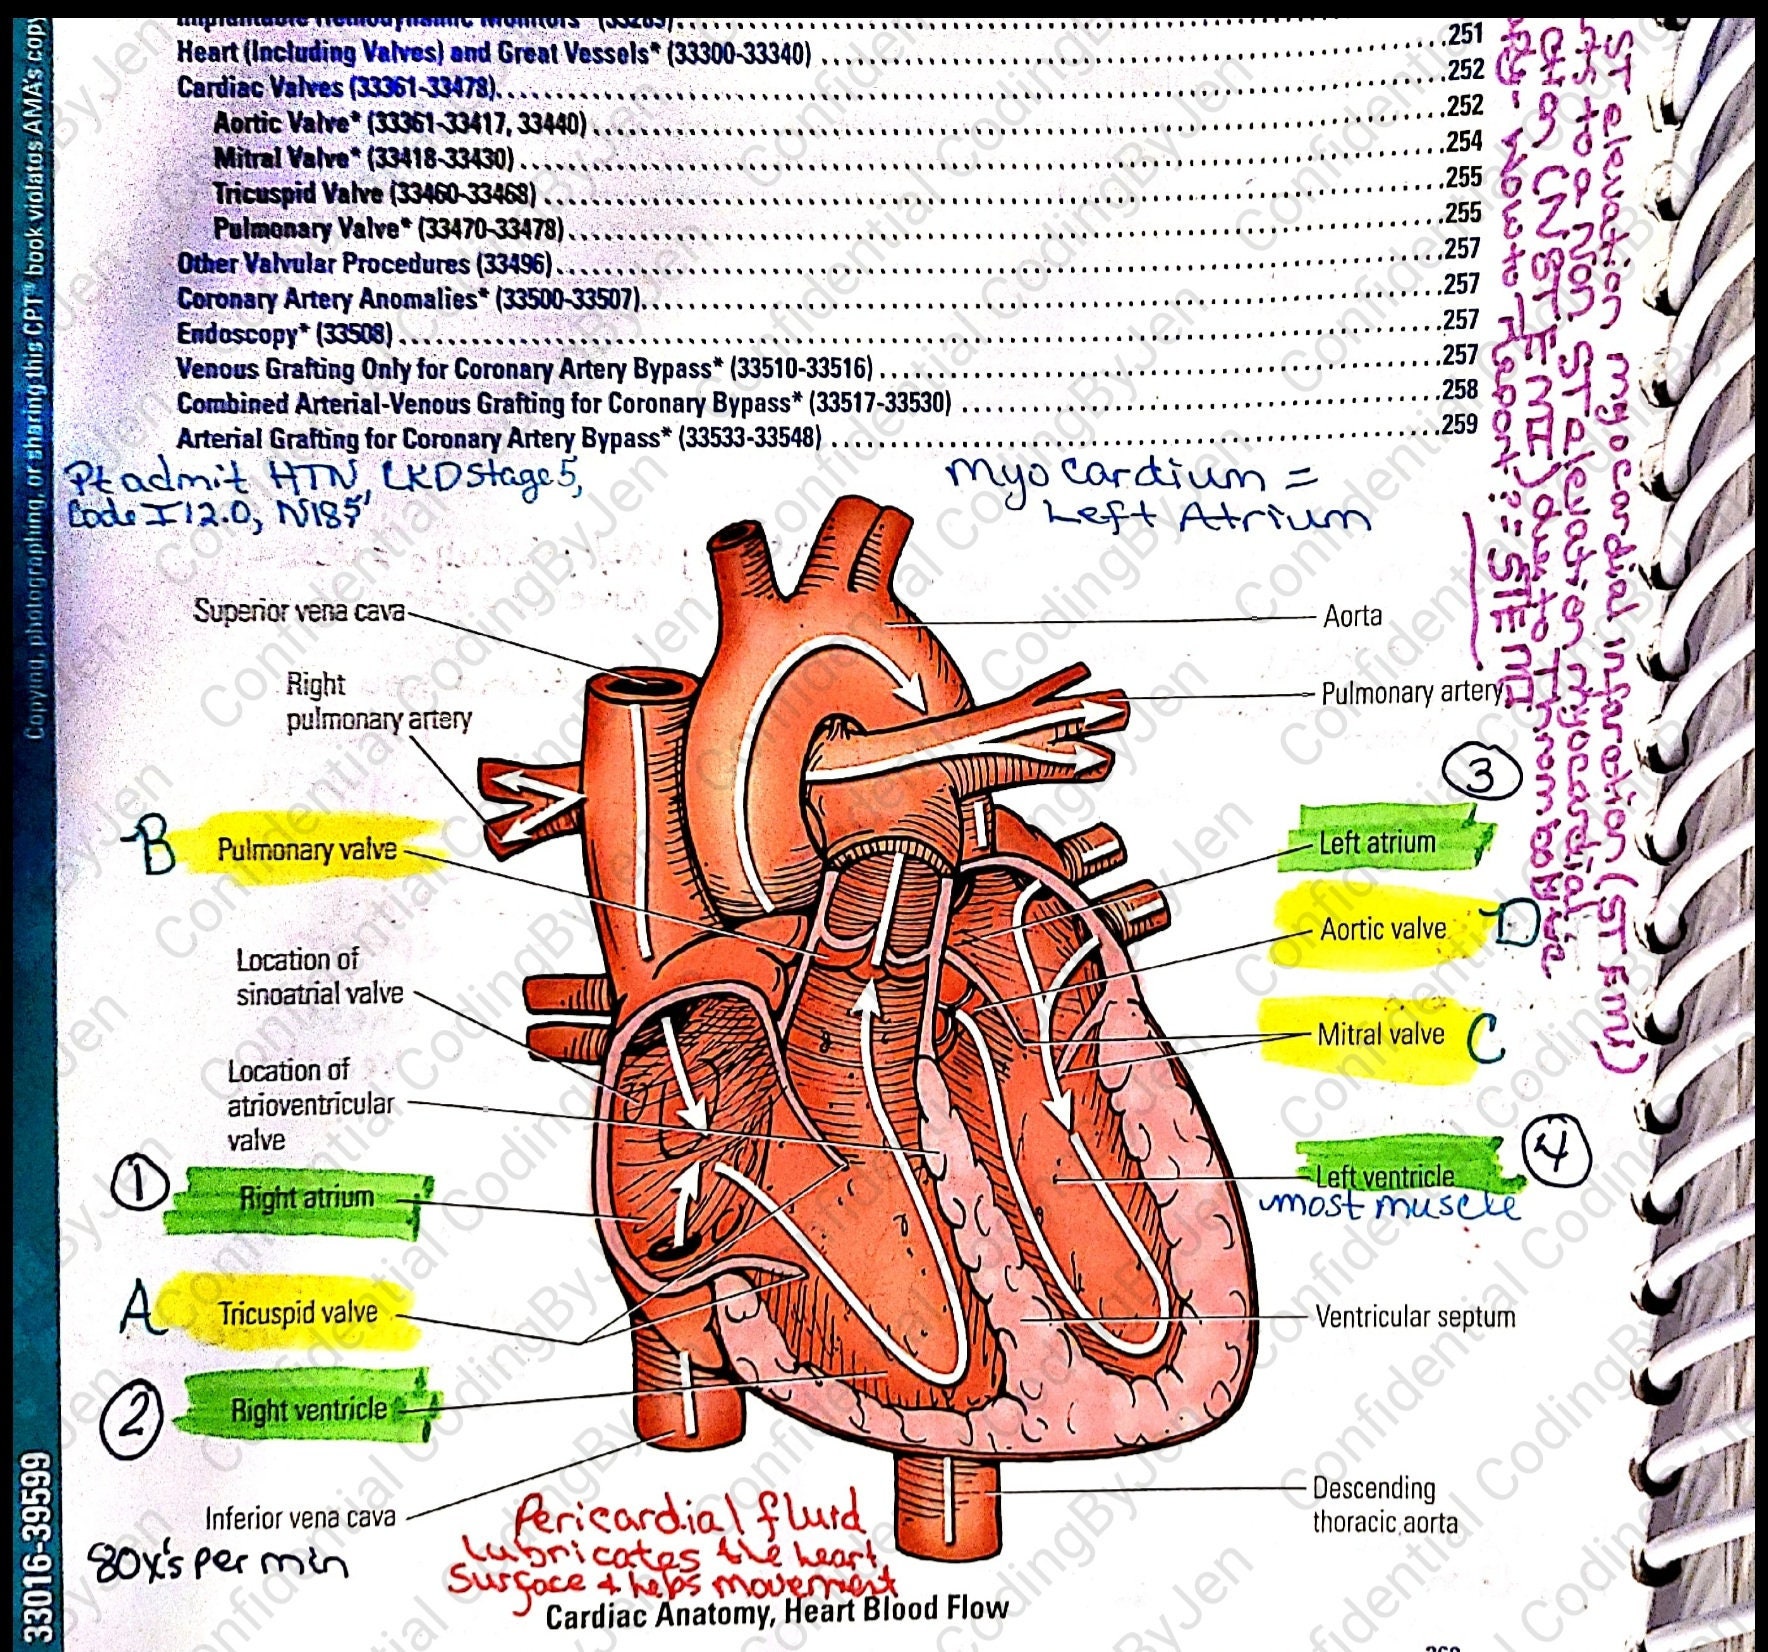 Implantable Hemodynamic Monitors* (33289)
Heart (Including Valves) and Great Vessels* (33300-33340) 251
Cardiac Valves (33361-33478) 252
Aortic Valve* (33361-33417, 33440) 252
Mitral Valve* (33418-33430) 254
Tricuspid Valve (33460-33468) 255
Pulmonary Valve* (33470-33478) 255
Other Valvular Procedures (33496) 257
Coronary Artery Anomalies* (33500-33507) 257
Endoscopy* (33508) 257
Venous Grafting Only for Coronary Artery Bypass* (33510-33516) 257
Combined Arterial-Venous Grafting for Coronary Bypass* (33517-33530) 258
Arterial Grafting for Coronary Artery Bypass* (33533-33548) 259
Pt admit HTN, CKD Stage 5,
Code I12.0, N185
Myocardium =
Left Atrium
Superior vena cava
Aorta
Right
pulmonary artery
Pulmonary artery
3
B Pulmonary valve
Left atrium
Aortic valve D
Location of
sinoatrial valve
Mitral valve C
Location of
atrioventricular
valve
1 Right atrium
4
Left ventricle
most muscle
A Tricuspid valve
Ventricular septum
2 Right ventricle
Inferior vena cava
Descending
thoracic aorta
80x's per min
Pericardial fluid
lubricates the heart
Surface + helps movement
Cardiac Anatomy, Heart Blood Flow
ST elevation myocardial infarction (STEMI)
to a Non ST elevation myocardial
(NSTEMI) due to Thrombolytic
How to Report? = STEMI
Copying, photographing, or sharing this CPT® book violates AMA's copy
33016-39599
Confidential CodingByJen